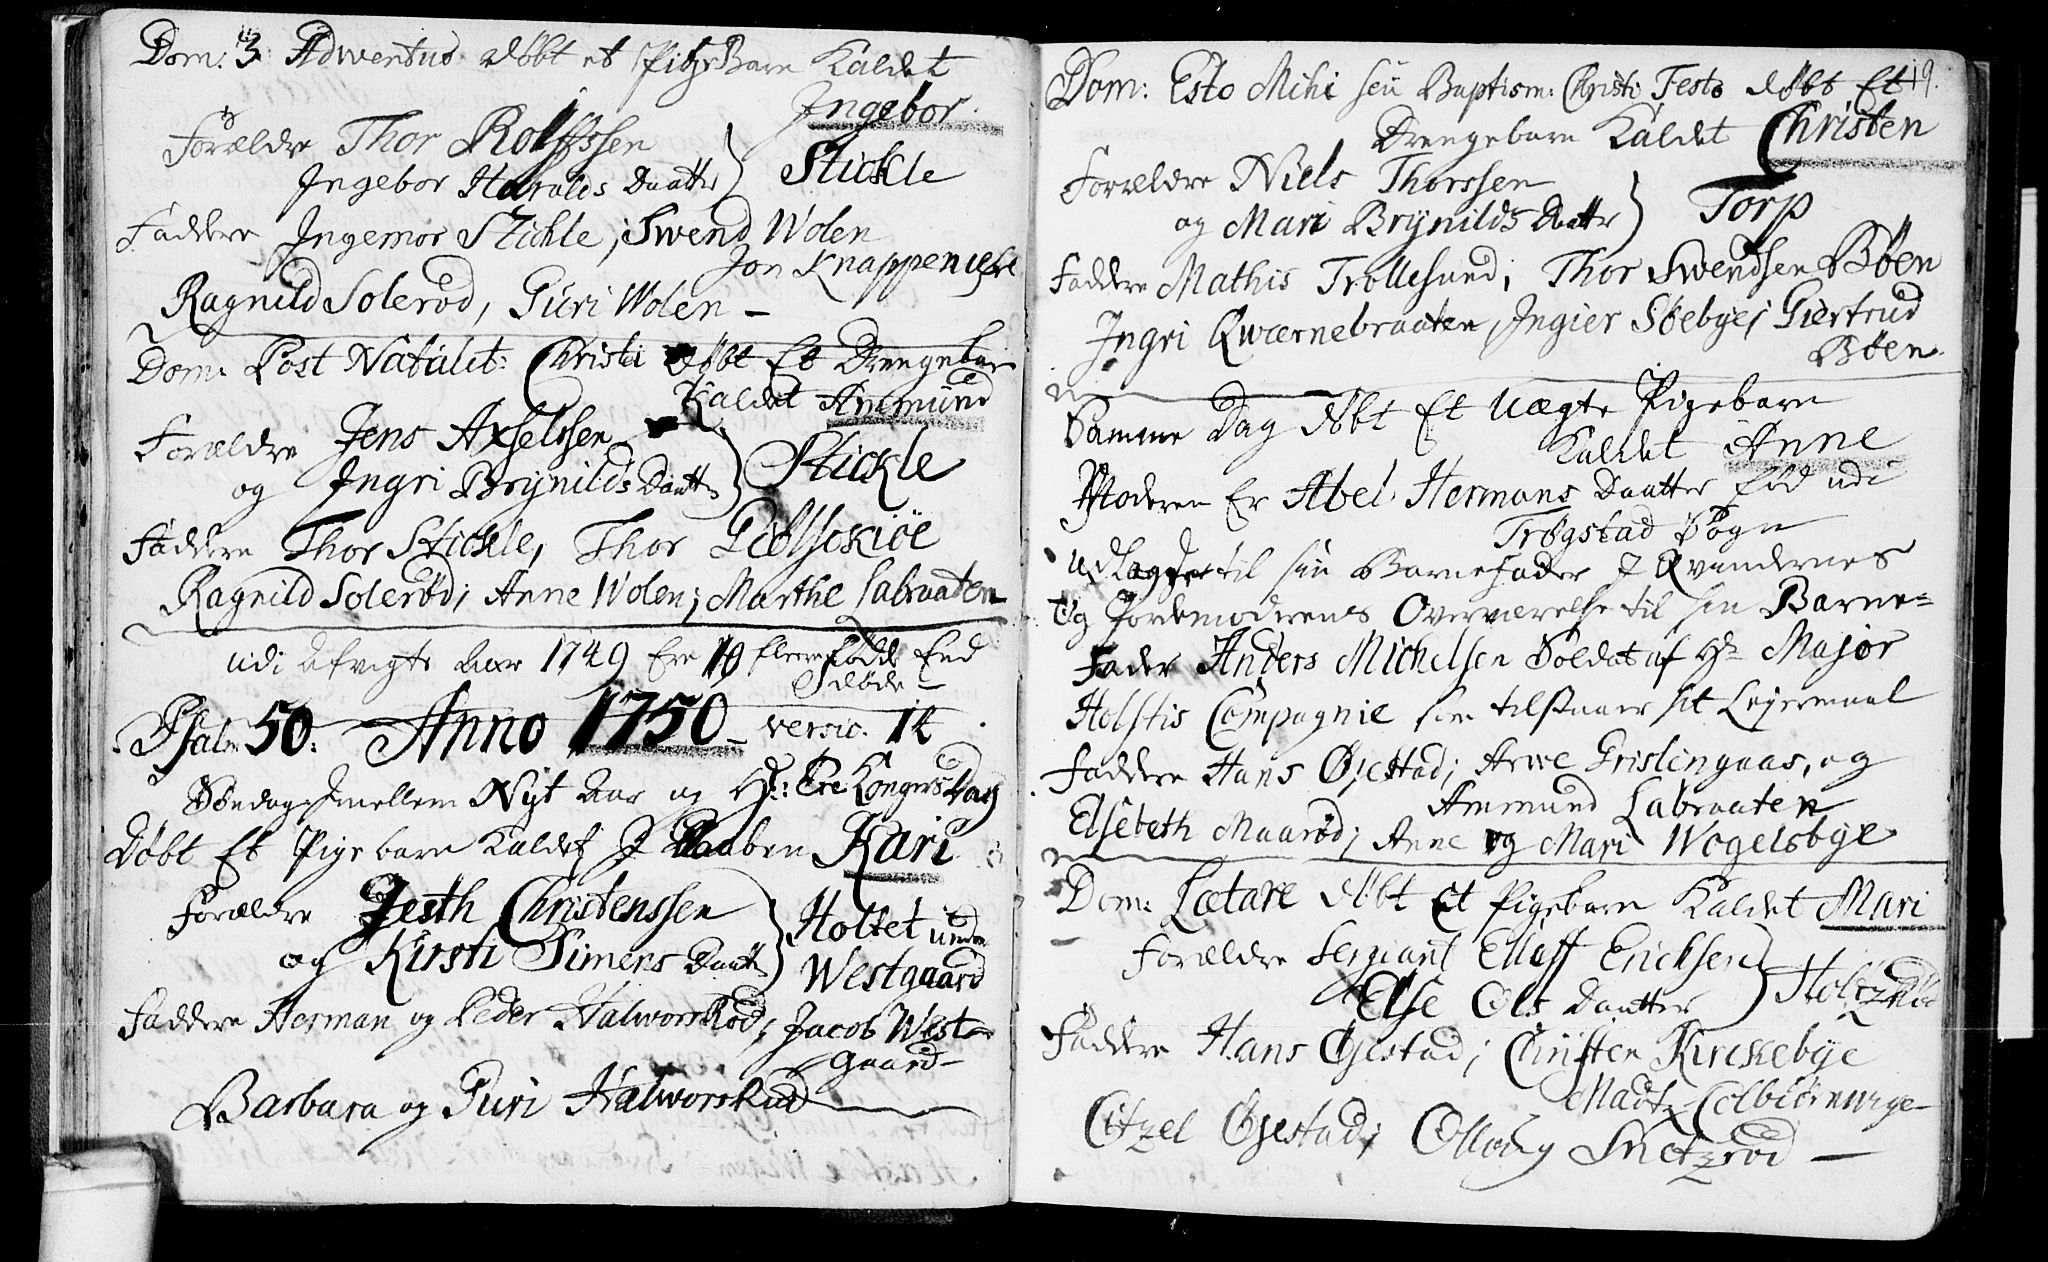 Dom: 3 Adventus døbt et PigeBarn Kaldet
Ingebor
Forældre Thor Rolfssen
Ingebor Haralds Daatter } Stickle
Faddere Ingemor Stickle, Swend Wolen
Jon Knappenifse
Ragnild Solerød, Guri Wolen –
Dom. Post Natalit: Christi døbt Et Drengebar
Kaldet Ammund
Forældre Jens Axselssen
og Ingri Brynilds Daatt } Stickle
Faddere Thor Stickle, Thor
Ragnild Solerød; Anne Wolen; Marthe Labraaten
udi afvigte Aar 1749 Ere 10 fleere fødde End
døde –
Psalm 50. Anno 1750 – versic. 14
Søndag Imellem Nyt Aar og H: 3re Konger Dag
Døbt Et Pigebarn Kaldet I Daaben Kari
Forældre Jesth Christenssen
og Kirsti Simens Daatt } Holtet under
Westgaard
Faddere Herman og Peder Halworsrød; Jacob West=
gaard –
Barbara og Guri Halworsrud
19.
Dom: Esto Mihi seu Baptism: Christi Festo døbt Et
Drengebarn Kaldet Christen
Forældre Niels Thorssen
og Mari Brynilds Daatter } Torp
Faddere Mathis Trollesund; Thor Swendsen Bøen
Ingri Qwærnebraaten, Ingier Søebye; Giertrud
Bøen.
Samme Dag døbt Et Uægte Pigebarn
Kaldet Anne
Moderen Er Abel Hermans Daatter fød udi
Trøgstad Sogn
udlagger til sin Barnefader I Qvindernes
og Jordemoderens Overværelse til sin Barne=
fader Anders Michelsen Soldat af Hr Major
Holstis Compagnie som tilstaaer sit Lejermaal
Faddere Hans Øjestad; Arwe Grislingaas, og
Ammund Labraaten
Elsebeth Maarød; Anne og Mari Wogelsbye
Dom: Lætare døbt Et Pigebarn Kaldet Mari
Forældre Sergiant Elloff Ericksen
Else Ols Daatter } Holtzrød
Faddere Hans Øjestad; Christen Kirckebye
Madtz Colbiørnurge
Citzel Øjestad; Ollou Snetzrød –